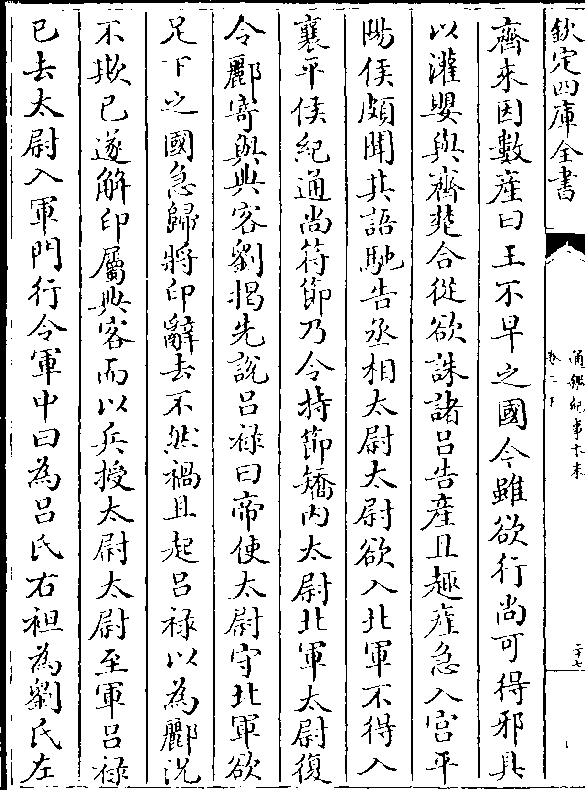 欽定四庫全書
通鑑紀事本末
齊來因數産曰王不早之國今雖欲行尚可得邪具
以灌嬰與齊楚合從欲誅諸吕告産且趣産急入宫平
陽侯頗聞其語馳告丞相太尉太尉欲入北軍不得入
襄平侯紀通尚符節乃令持節矯内太尉北軍太尉復
令酈寄與典客劉揭先說吕禄曰帝使太尉守北軍欲
足下之國急歸將印辭去不然禍且起吕禄以為酈況
不欺已遂解印屬典客而以兵授太尉太尉至軍吕禄
已去太尉入軍門行令軍中曰為吕氏右袒為劉氏左